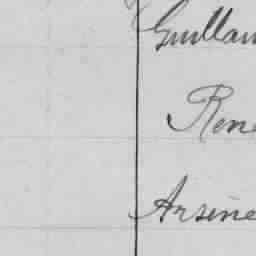 Guillau
Rene
Arsene